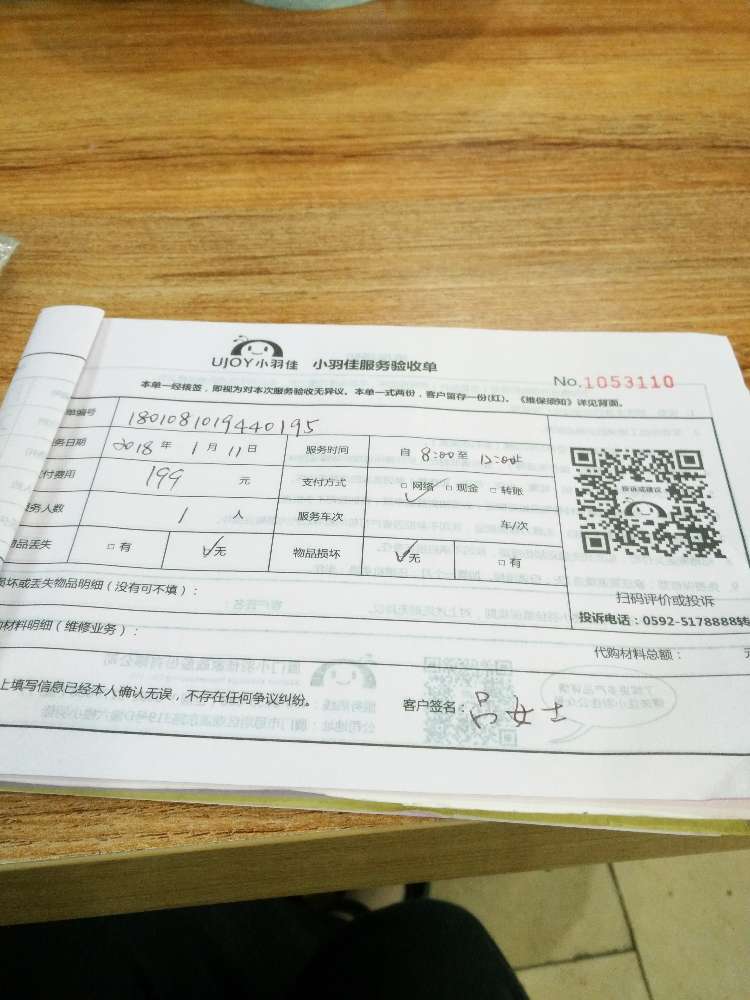 UJOY小羽佳 小羽佳服务验收单
No.1053110
本单一经核签，即视为对本次服务验收无异议。本单一式两份，客户留存一份(红)。《维保须知》详见背面。
单编号 1801081019440195
务日期 2018 年 1 月 11 日 服务时间 自 8:00 至 12:00
付费用 199 元 支付方式 □ 网络 □ 现金 □ 转账
务人数 1 人 服务车次 车/次
品丢失 □ 有 ☑无 物品损坏 ☑无 □ 有
投诉或建议
扫码评价或投诉
投诉电话：0592-5178888转
损坏或丢失物品明细（没有可不填）：
购材料明细（维修业务）：
代购材料总额： 元
上填写信息已经本人确认无误，不存在任何争议纠纷。 客户签名：吕女士